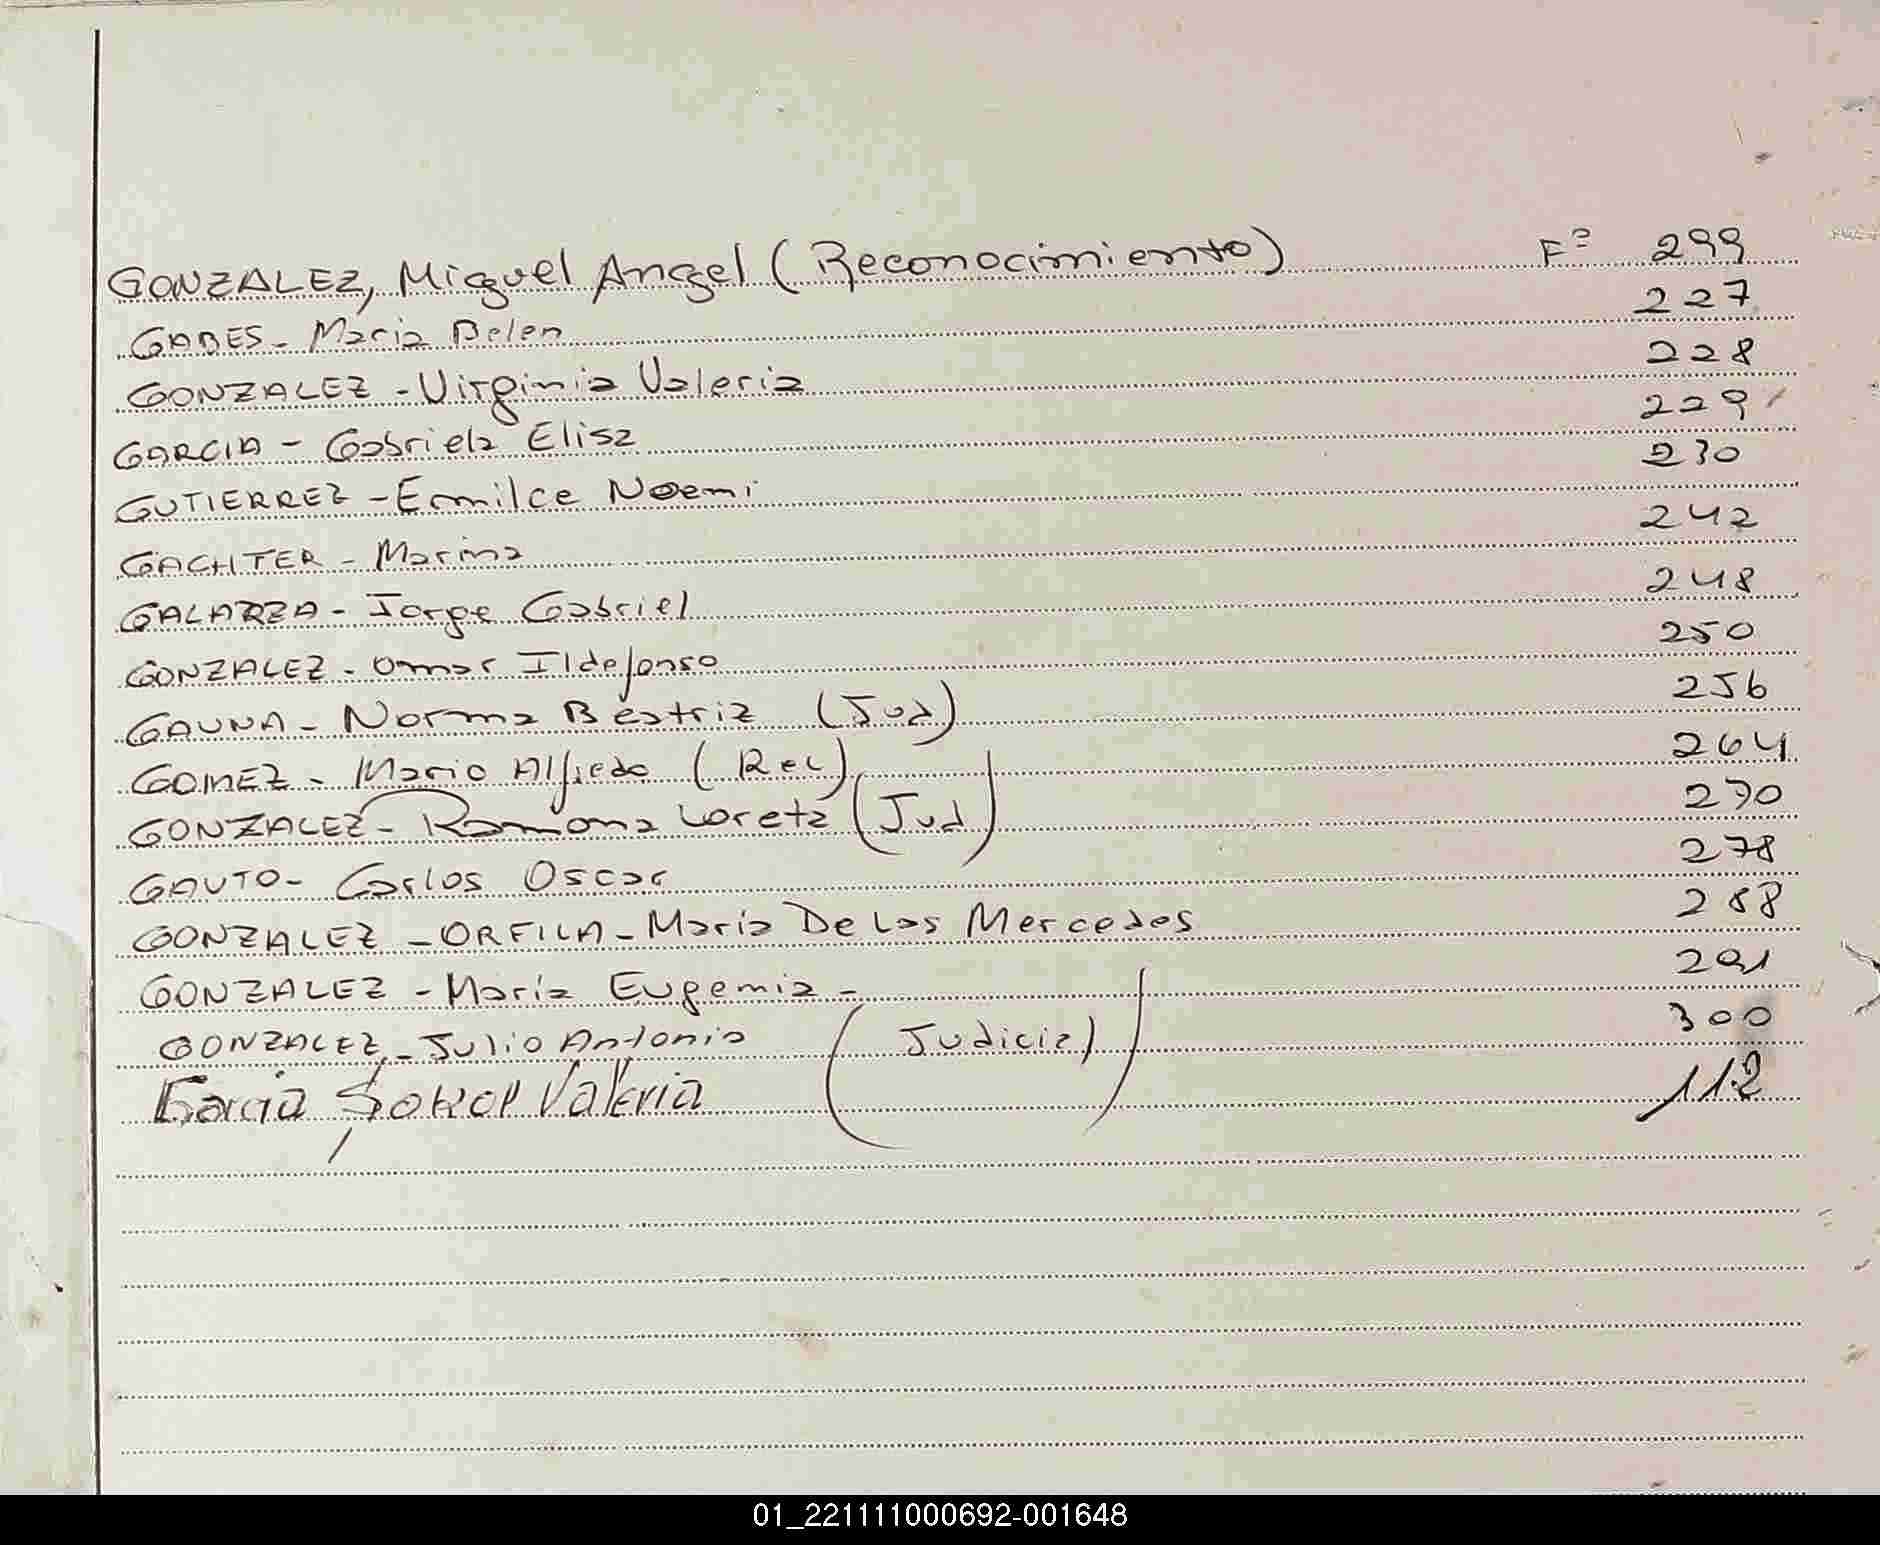 GONZALEZ, Miguel Angel (Reconocimiento) Fº 299
GABES - Maria Belen 227
GONZALEZ - Virginia Valeria 228
GARCIA - Gabriela Elisa 229
GUTIERREZ - Ermilce Noemi 230
GACHTER - Marina 242
GALARZA - Jorge Gabriel 248
GONZALEZ - Omar Ildefonso 250
GAUNA - Norma Beatriz (Jud) 256
GOMEZ - Mario Alfredo (Rec) 264
GONZALEZ - Ramona Loreta (Jud) 270
GAUTO - Carlos Oscar 278
GONZALEZ - ORFILA - Maria De Las Mercedes 288
GONZALEZ - María Eugemia - 291
GONZALEZ - Julio Antonio (Judicial) 300
Garcia Valeria 112
01_221111000692-001648